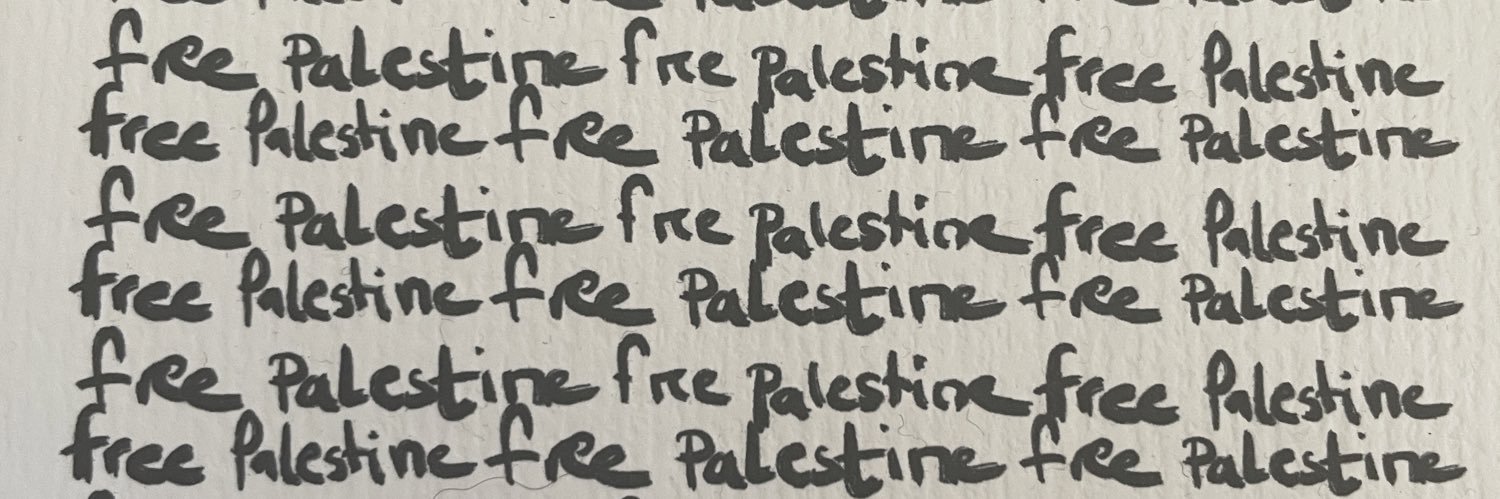 free Palestine free Palestine free Palestine
free Palestine free Palestine free Palestine
free Palestine free Palestine free Palestine
free Palestine free Palestine free Palestine
free Palestine free Palestine free Palestine
free Palestine free Palestine free Palestine